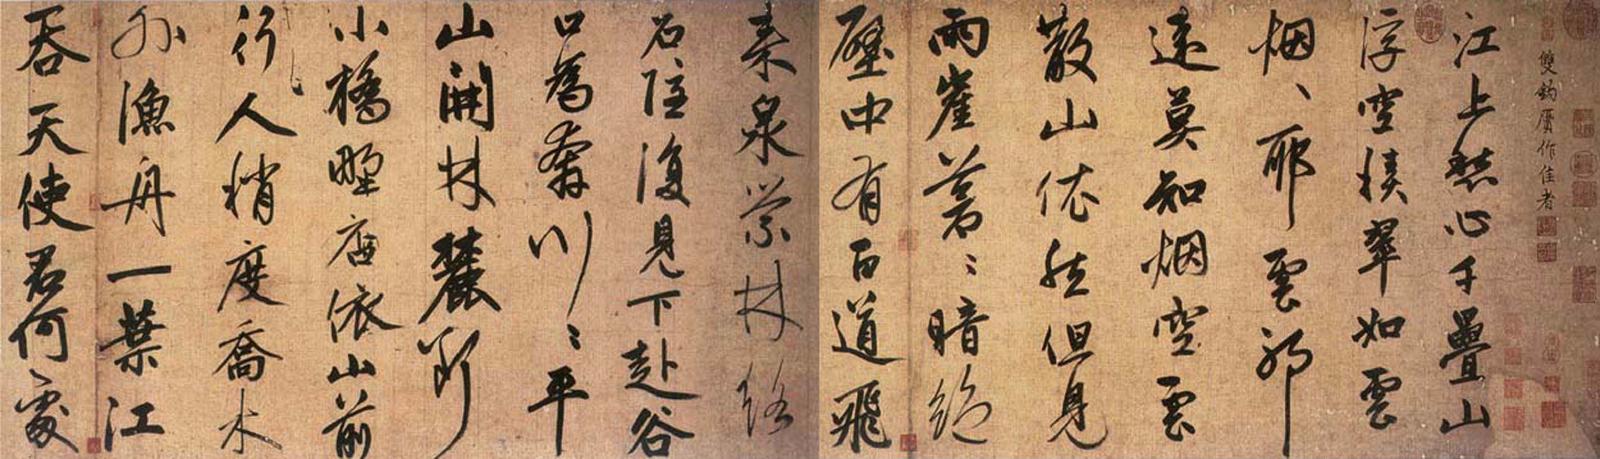 雙鈎贋作佳者
江上愁心千疊山
浮空積翠如雲
烟、耶雲耶
遠莫知烟空雲
散山依然但見
兩崖蒼々暗絕
壁中有百道飛
來泉縈林絡
石隱復見下赴谷
口為奔川々平
山開林麓斷
小橋野店依山前
行人稍度喬木
外漁舟一葉江
吞天使君何處